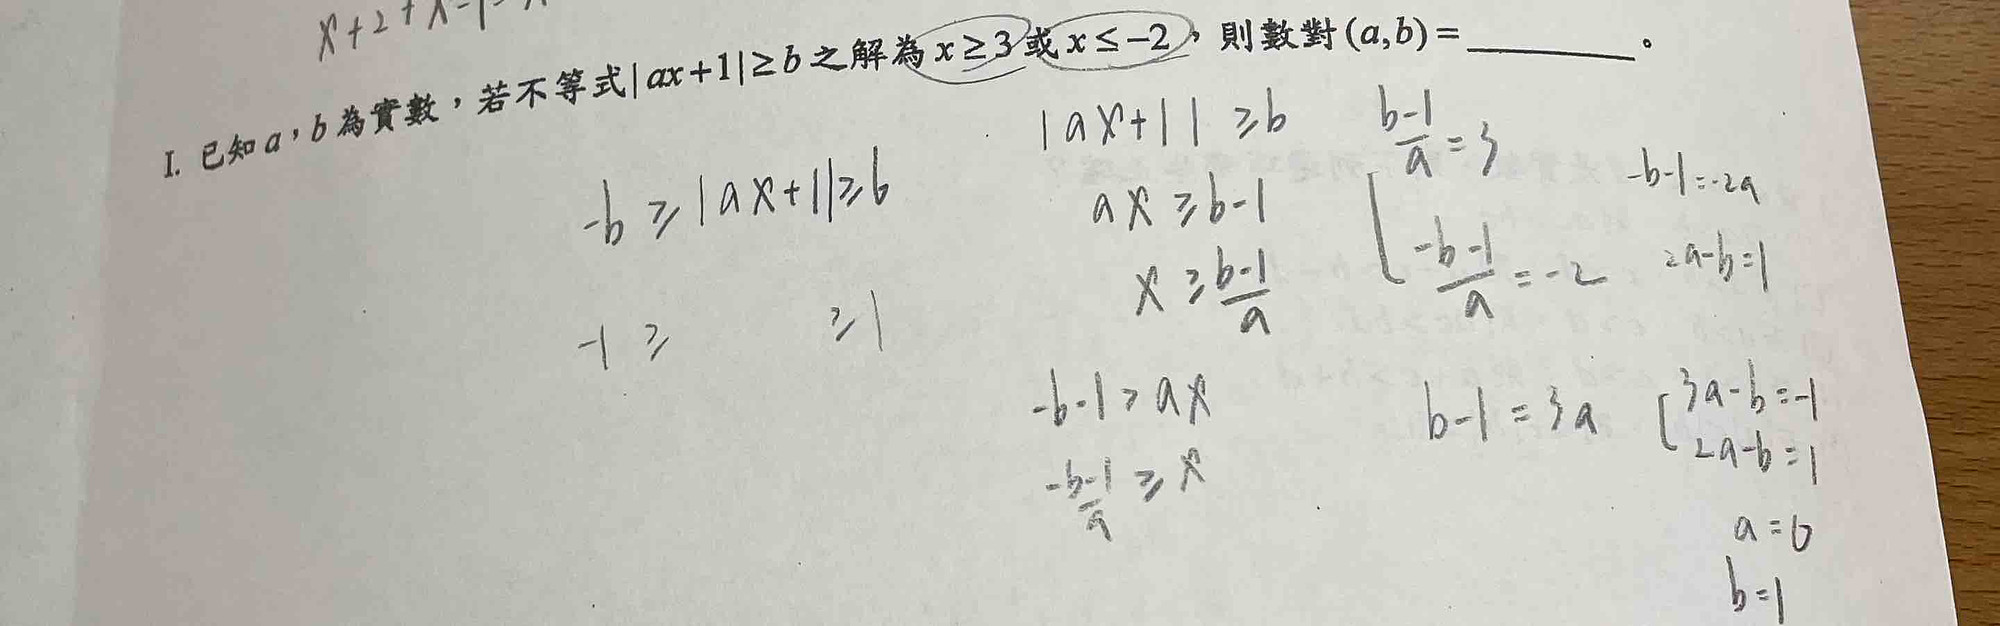 x+2+x-1
I. 已知a，b為實數，若不等式|ax+1|≥b之解為x≥3或x≤-2，則數對(a,b)=________。
-b ≥ |ax+1| ≥ b
-1 ≥      ≥ 1
|ax+1| ≥ b
ax ≥ b-1
x ≥ \frac{b-1}{a}
-b-1 ≥ ax
\frac{-b-1}{a} ≥ x
\frac{b-1}{a} = 3
\frac{-b-1}{a} = -2
b-1 = 3a
-b-1 = -2a
2a-b = 1
3a-b = -1
2a-b = 1
a = 0
b = 1